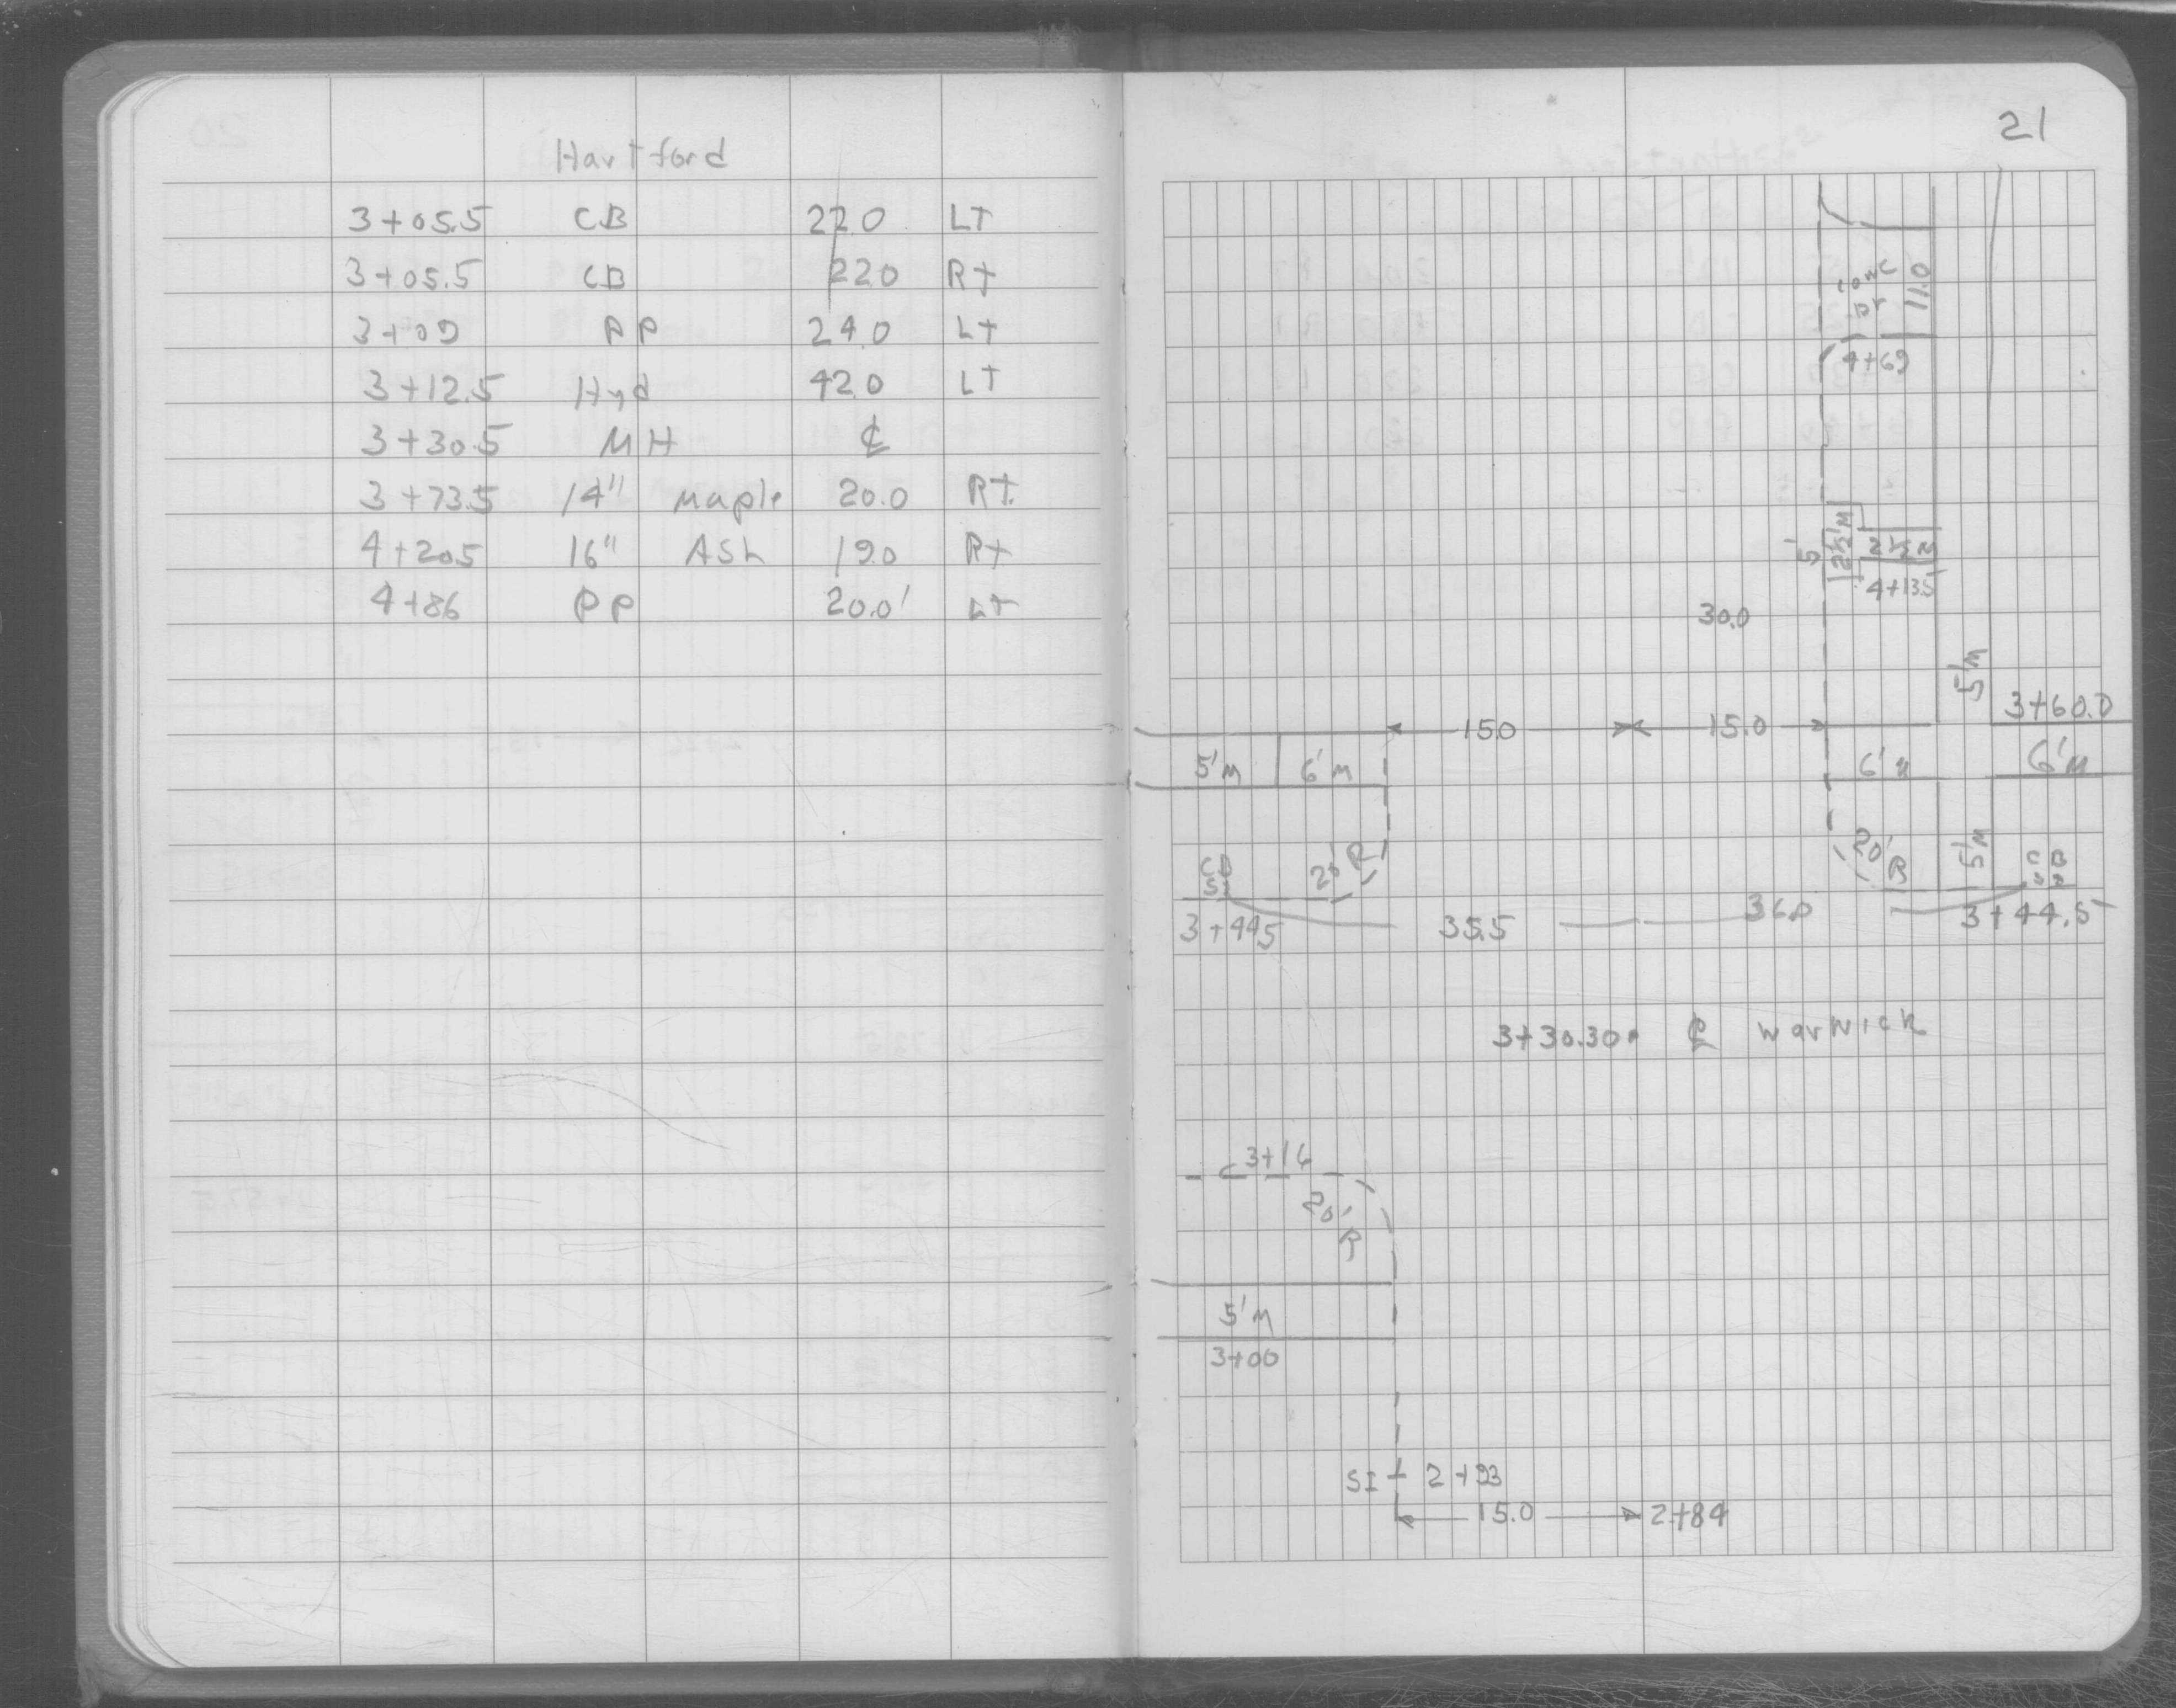 Hartford
3+05.5 CB 22.0 LT
3+05.5 CB 22.0 RT
3+09 PP 24.0 LT
3+12.5 Hyd 42.0 LT
3+30.5 MH ℄
3+73.5 14" Maple 20.0 RT.
4+20.5 16" Ash 19.0 RT
4+86 PP 20.0' LT
21
conc
Dr
11.0
4+69
5'
2½'M
2½M
4+13.5
30.0
5'M
3+60.0
15.0
15.0
5'M
6'M
6'M
6'M
20'R
20'R
5'M
CB
CB
3+44.5
35.5
36.0
3+44.5
3+30.30 ℄ Warwick
3+16
20'R
5'M
3+00
SI 2+93
15.0
2+84